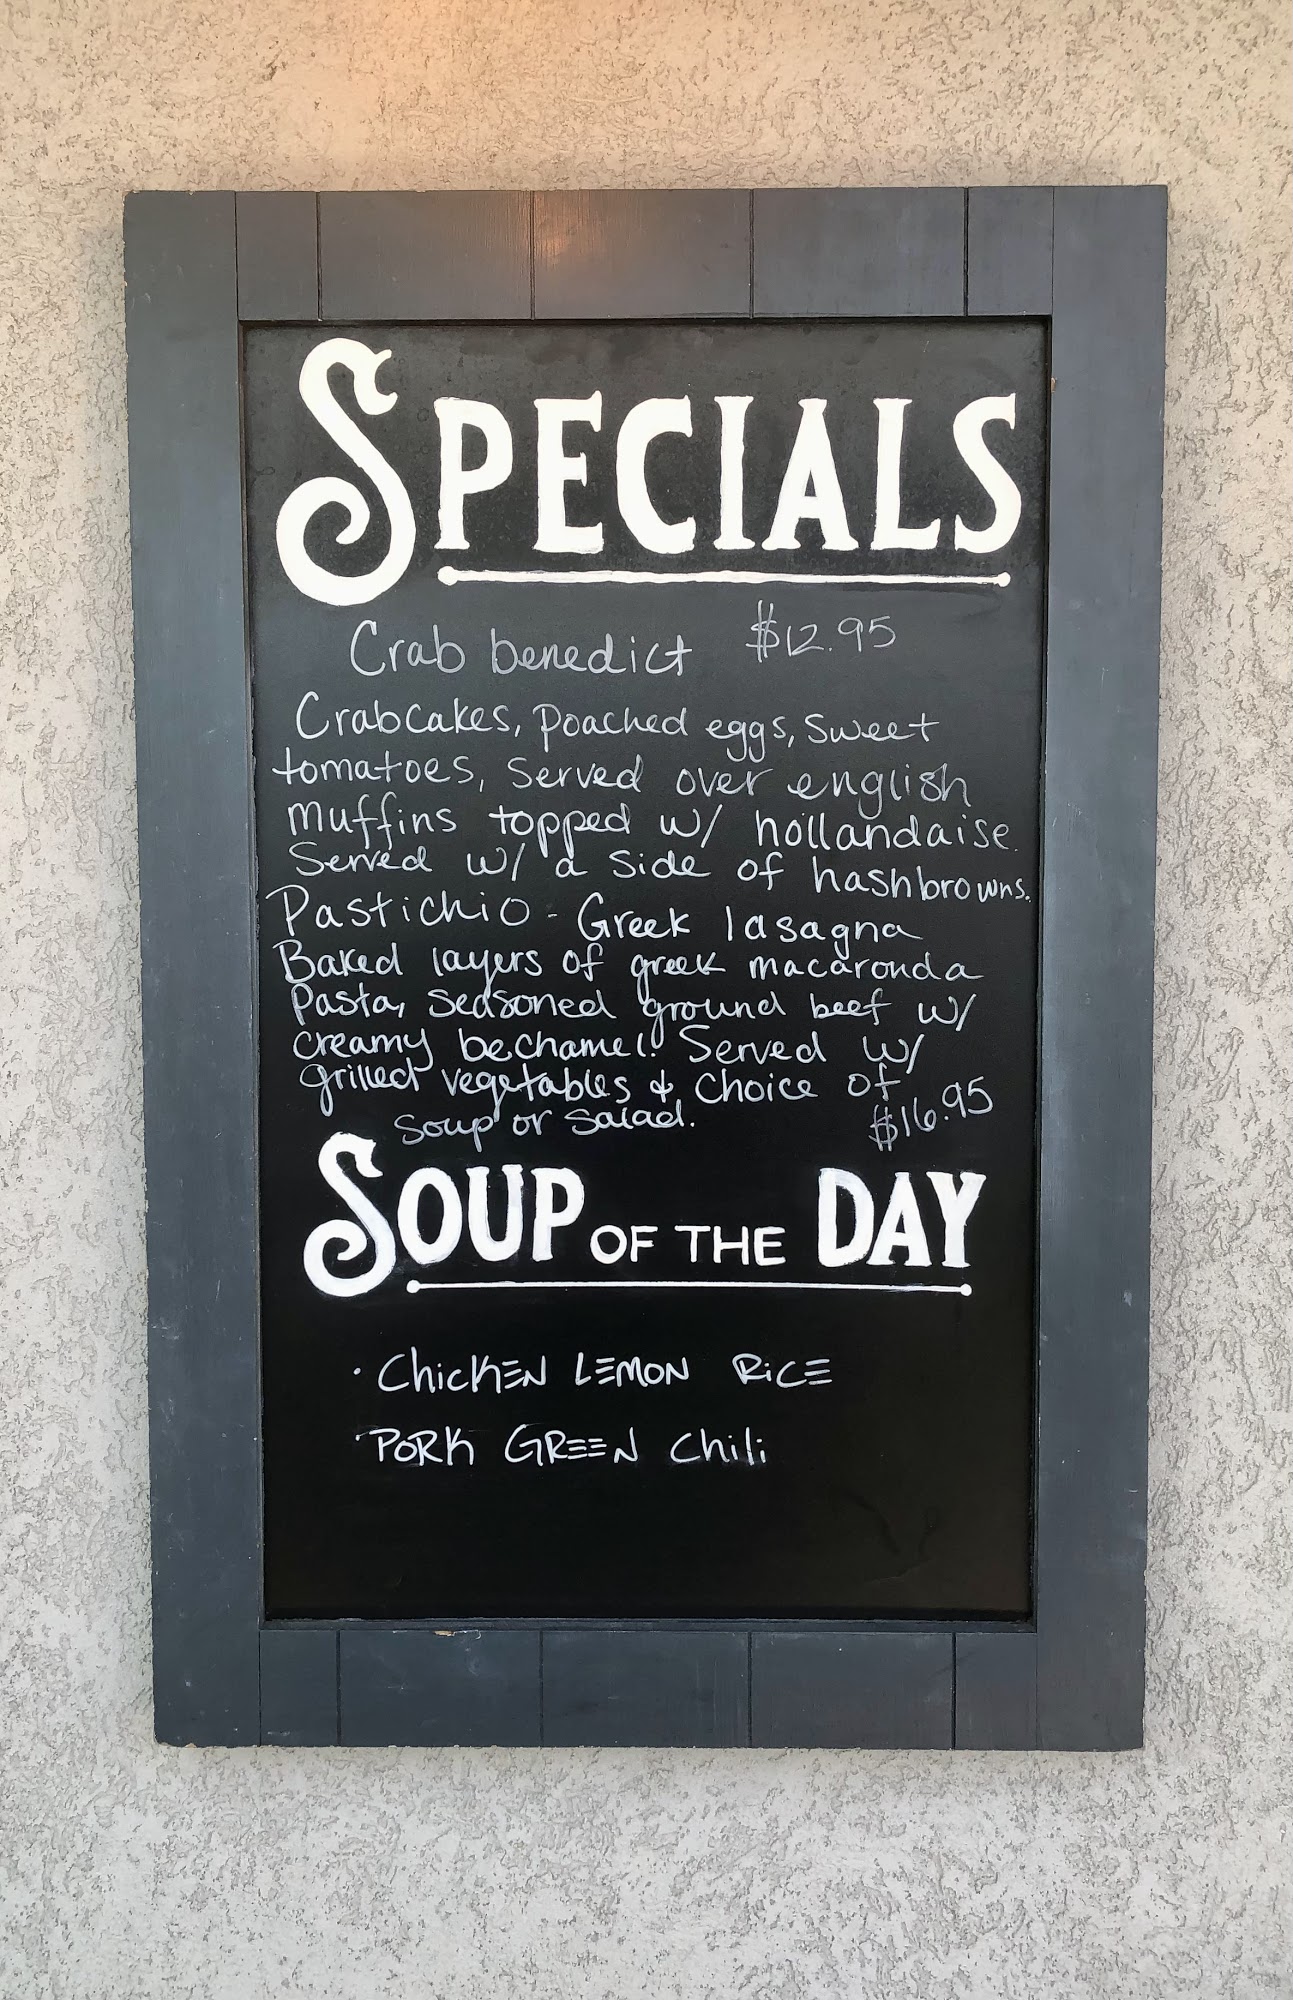 SPECIALS
Crab benedict $12.95
Crabcakes, poached eggs, sweet
tomatoes, served over english
muffins topped w/ hollandaise.
Served w/ a side of hashbrowns.
Pastichio - Greek lasagna
Baked layers of greek macaronda
Pasta, seasoned ground beef w/
creamy bechamel! Served w/
grilled vegetables & choice of
soup or salad. $16.95
SOUP OF THE DAY
· Chicken Lemon Rice
· Pork Green Chili